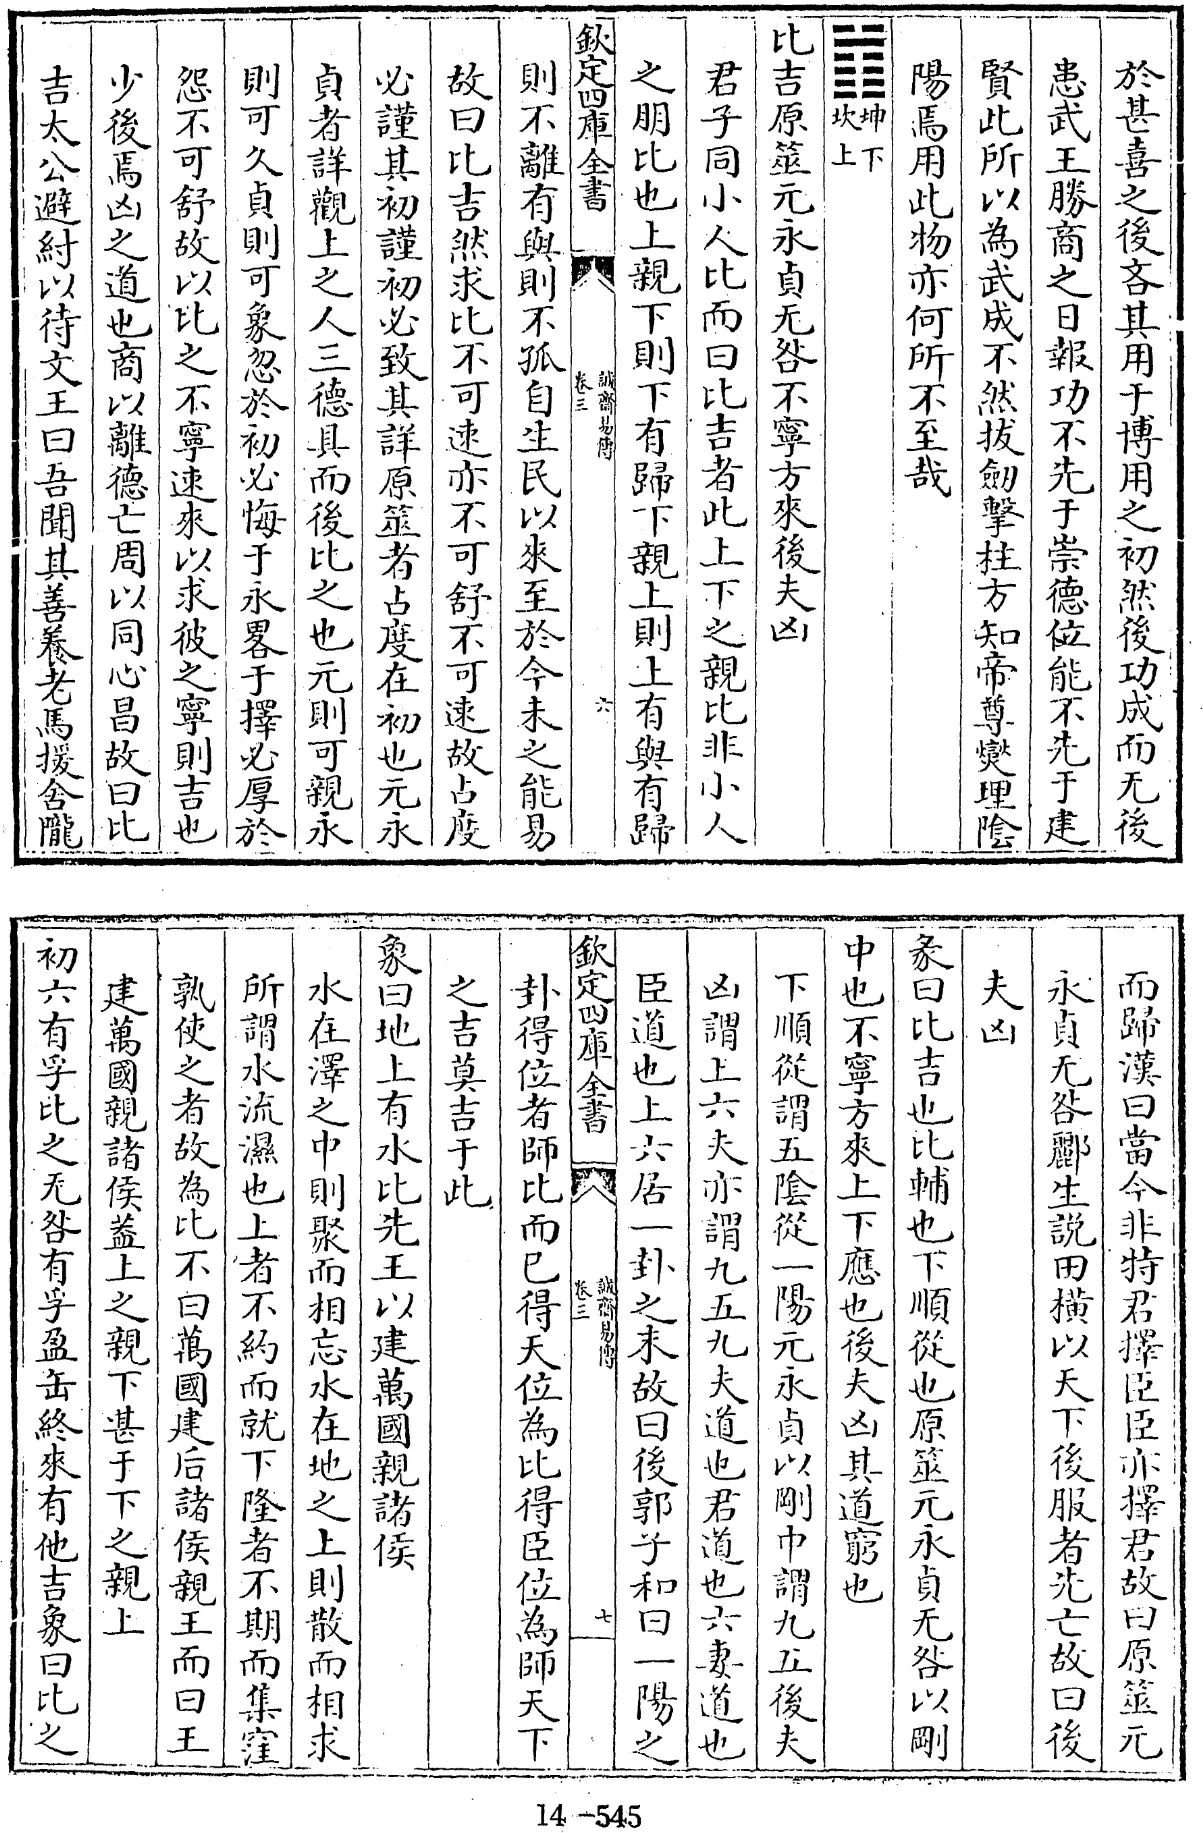 於甚喜之後吝其用于博用之初然後功成而无後
患武王勝商之日報功不先于崇德位能不先于建
賢此所以為武成不然拔劒擊柱方知帝尊爕理陰
陽焉用此物亦何所不至哉
坤下
坎上
比吉原筮元永貞无咎不寧方來後夫凶
君子同小人比而曰比吉者此上下之親比非小人
之朋比也上親下則下有歸下親上則上有與有歸
欽定四庫全書
誠齋易傳
卷三
六
則不離有與則不孤自生民以來至於今未之能易
故曰比吉然求比不可速亦不可舒不可速故占度
必謹其初謹初必致其詳原筮者占度在初也元永
貞者詳觀上之人三德具而後比之也元則可親永
則可久貞則可象忽於初必悔于永畧于擇必厚於
怨不可舒故以比之不寧速來以求彼之寧則吉也
少後焉凶之道也商以離德亡周以同心昌故曰比
吉太公避紂以待文王曰吾聞其善養老馬援舍隴
而歸漢曰當今非特君擇臣臣亦擇君故曰原筮元
永貞无咎酈生説田橫以天下後服者先亡故曰後
夫凶
彖曰比吉也比輔也下順從也原筮元永貞无咎以剛
中也不寧方來上下應也後夫凶其道窮也
下順從謂五陰從一陽元永貞以剛中謂九五後夫
凶謂上六夫亦謂九五九夫道也君道也六妻道也
臣道也上六居一卦之末故曰後郭子和曰一陽之
欽定四庫全書
誠齋易傳
卷三
七
卦得位者師比而已得天位為比得臣位為師天下
之吉莫吉于此
象曰地上有水比先王以建萬國親諸侯
水在澤之中則聚而相忘水在地之上則散而相求
所謂水流濕也上者不約而就下隆者不期而集窪
孰使之者故為比不曰萬國建后諸侯親王而曰王
建萬國親諸侯葢上之親下甚于下之親上
初六有孚比之无咎有孚盈缶終來有他吉象曰比之
14-545